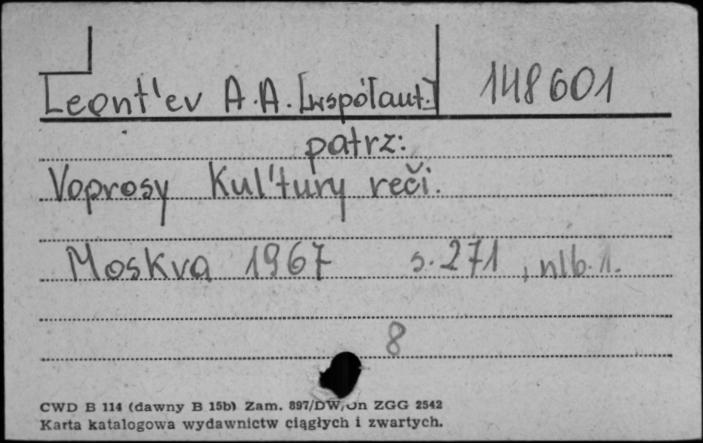 Leont'ev A.A. [współaut.] 148601
patrz:
Voprosy Kul'tury reči.
Moskva 1967 s. 271, nlb. 1.
8
CWD B 114 (dawny B 15b) Zam. 897/DW/Jn ZGG 2542
Karta katalogowa wydawnictw ciągłych i zwartych.